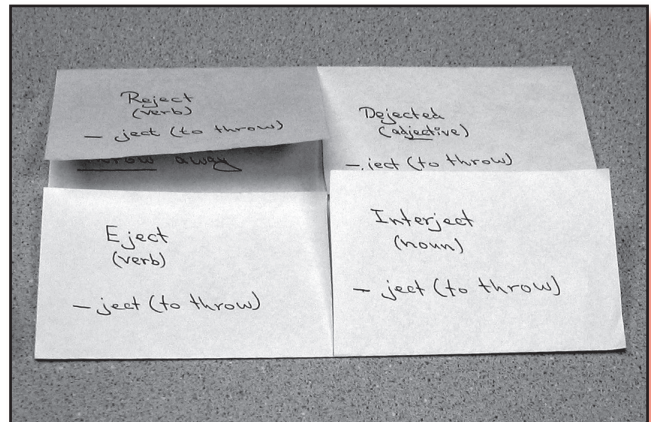 Reject
(verb)
– ject (to throw)
throw away
Dejected
(adjective)
– ject (to throw)
Eject
(verb)
– ject (to throw)
Interject
(noun)
– ject (to throw)